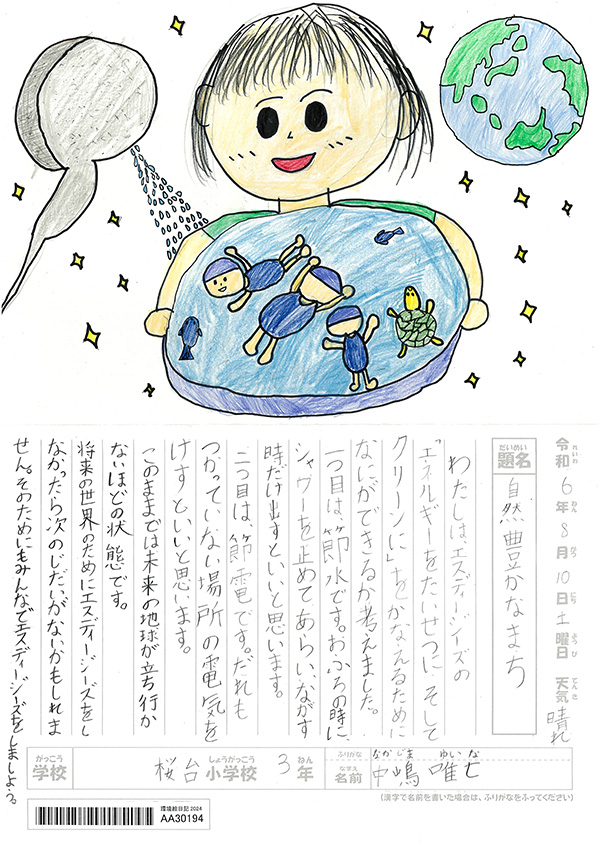 令和6年8月10日土曜日 天気 晴れ
れいわ ねん がつ にち ようび てんき
だいめい
題名 自然豊かなまち
わたしは、エスディージーズの
「エネルギーをたいせつに そして
クリーンに」をかなえるために
なにができるか考えました。
一つ目は、節水です。おふろの時に、
シャワーを止めてあらい、ながす
時だけ出すといいと思います。
二つ目は、節電です。だれも
つかっていない場所の電気を
けすといいと思います。
このままでは未来の地球が立ち行か
ないほどの状態です。
将来の世界のためにエスディージーズをし
なかったら次のじだいがないかもしれま
せん。そのためにもみんなでエスディージーズをしましょう。
がっこう しょうがっこう ねん ふりがな なかじま ゆいな
学校 桜台小学校 3年 なまえ 名前 中嶋 唯七
(漢字で名前を書いた場合は、ふりがなをふってください)
環境絵日記 2024
AA30194